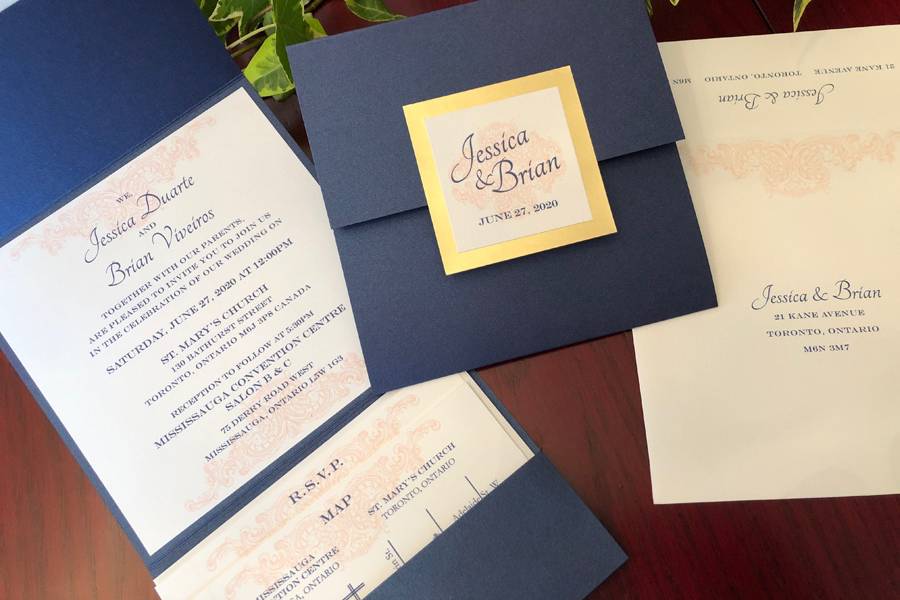 WE,
Jessica Duarte
AND
Brian Viveiros
TOGETHER WITH OUR PARENTS,
ARE PLEASED TO INVITE YOU TO JOIN US
IN THE CELEBRATION OF OUR WEDDING ON
SATURDAY, JUNE 27, 2020 AT 12:00PM
ST. MARY'S CHURCH
130 BATHURST STREET
TORONTO, ONTARIO M6J 3P8 CANADA
RECEPTION TO FOLLOW AT 5:30PM
MISSISSAUGA CONVENTION CENTRE
SALON B & C
75 DERRY ROAD WEST
MISSISSAUGA, ONTARIO L5W 1G3
R.S.V.P.
MAP
ST. MARY'S CHURCH
TORONTO, ONTARIO
MISSISSAUGA
CENTRE
ONTARIO
Adelaide St. W
Jessica
& Brian
JUNE 27, 2020
Jessica & Brian
21 KANE AVENUE TORONTO, ONTARIO M6N
Jessica & Brian
21 KANE AVENUE
TORONTO, ONTARIO
M6N 3M7